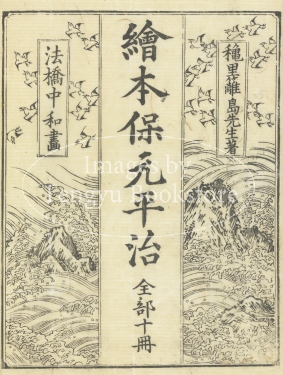 穐里離島先生著
繪本保元平治 全部十冊
法橋中和畫
Images by
Tengyu Bookstore